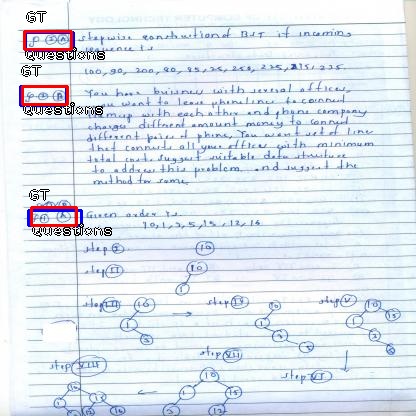 GT
Questions
stepwise construction of BST if incoming
sequence is
100, 90, 200, 80, 85, 25, 250, 225,
GT
Questions
You have business with several offices,
you want to lease phone line to connect
them up with each other and phone company
charge different amount money to connect
different pairs of phone, You want set of line
that connects all your offices with minimum
total cost. suggest suitable data structure
to address this problem. and suggest the
method for same.
GT
Questions
Given order is
10, 1, 3, 5, 15, 12, 16
step I 10
step II 10
1
step III 10
1
3
step IV 10
1
3
5
step V 10 15
1
3
5
step VI
step VII 10
1 15
3 12
step VIII 10
1 15
3 12 16